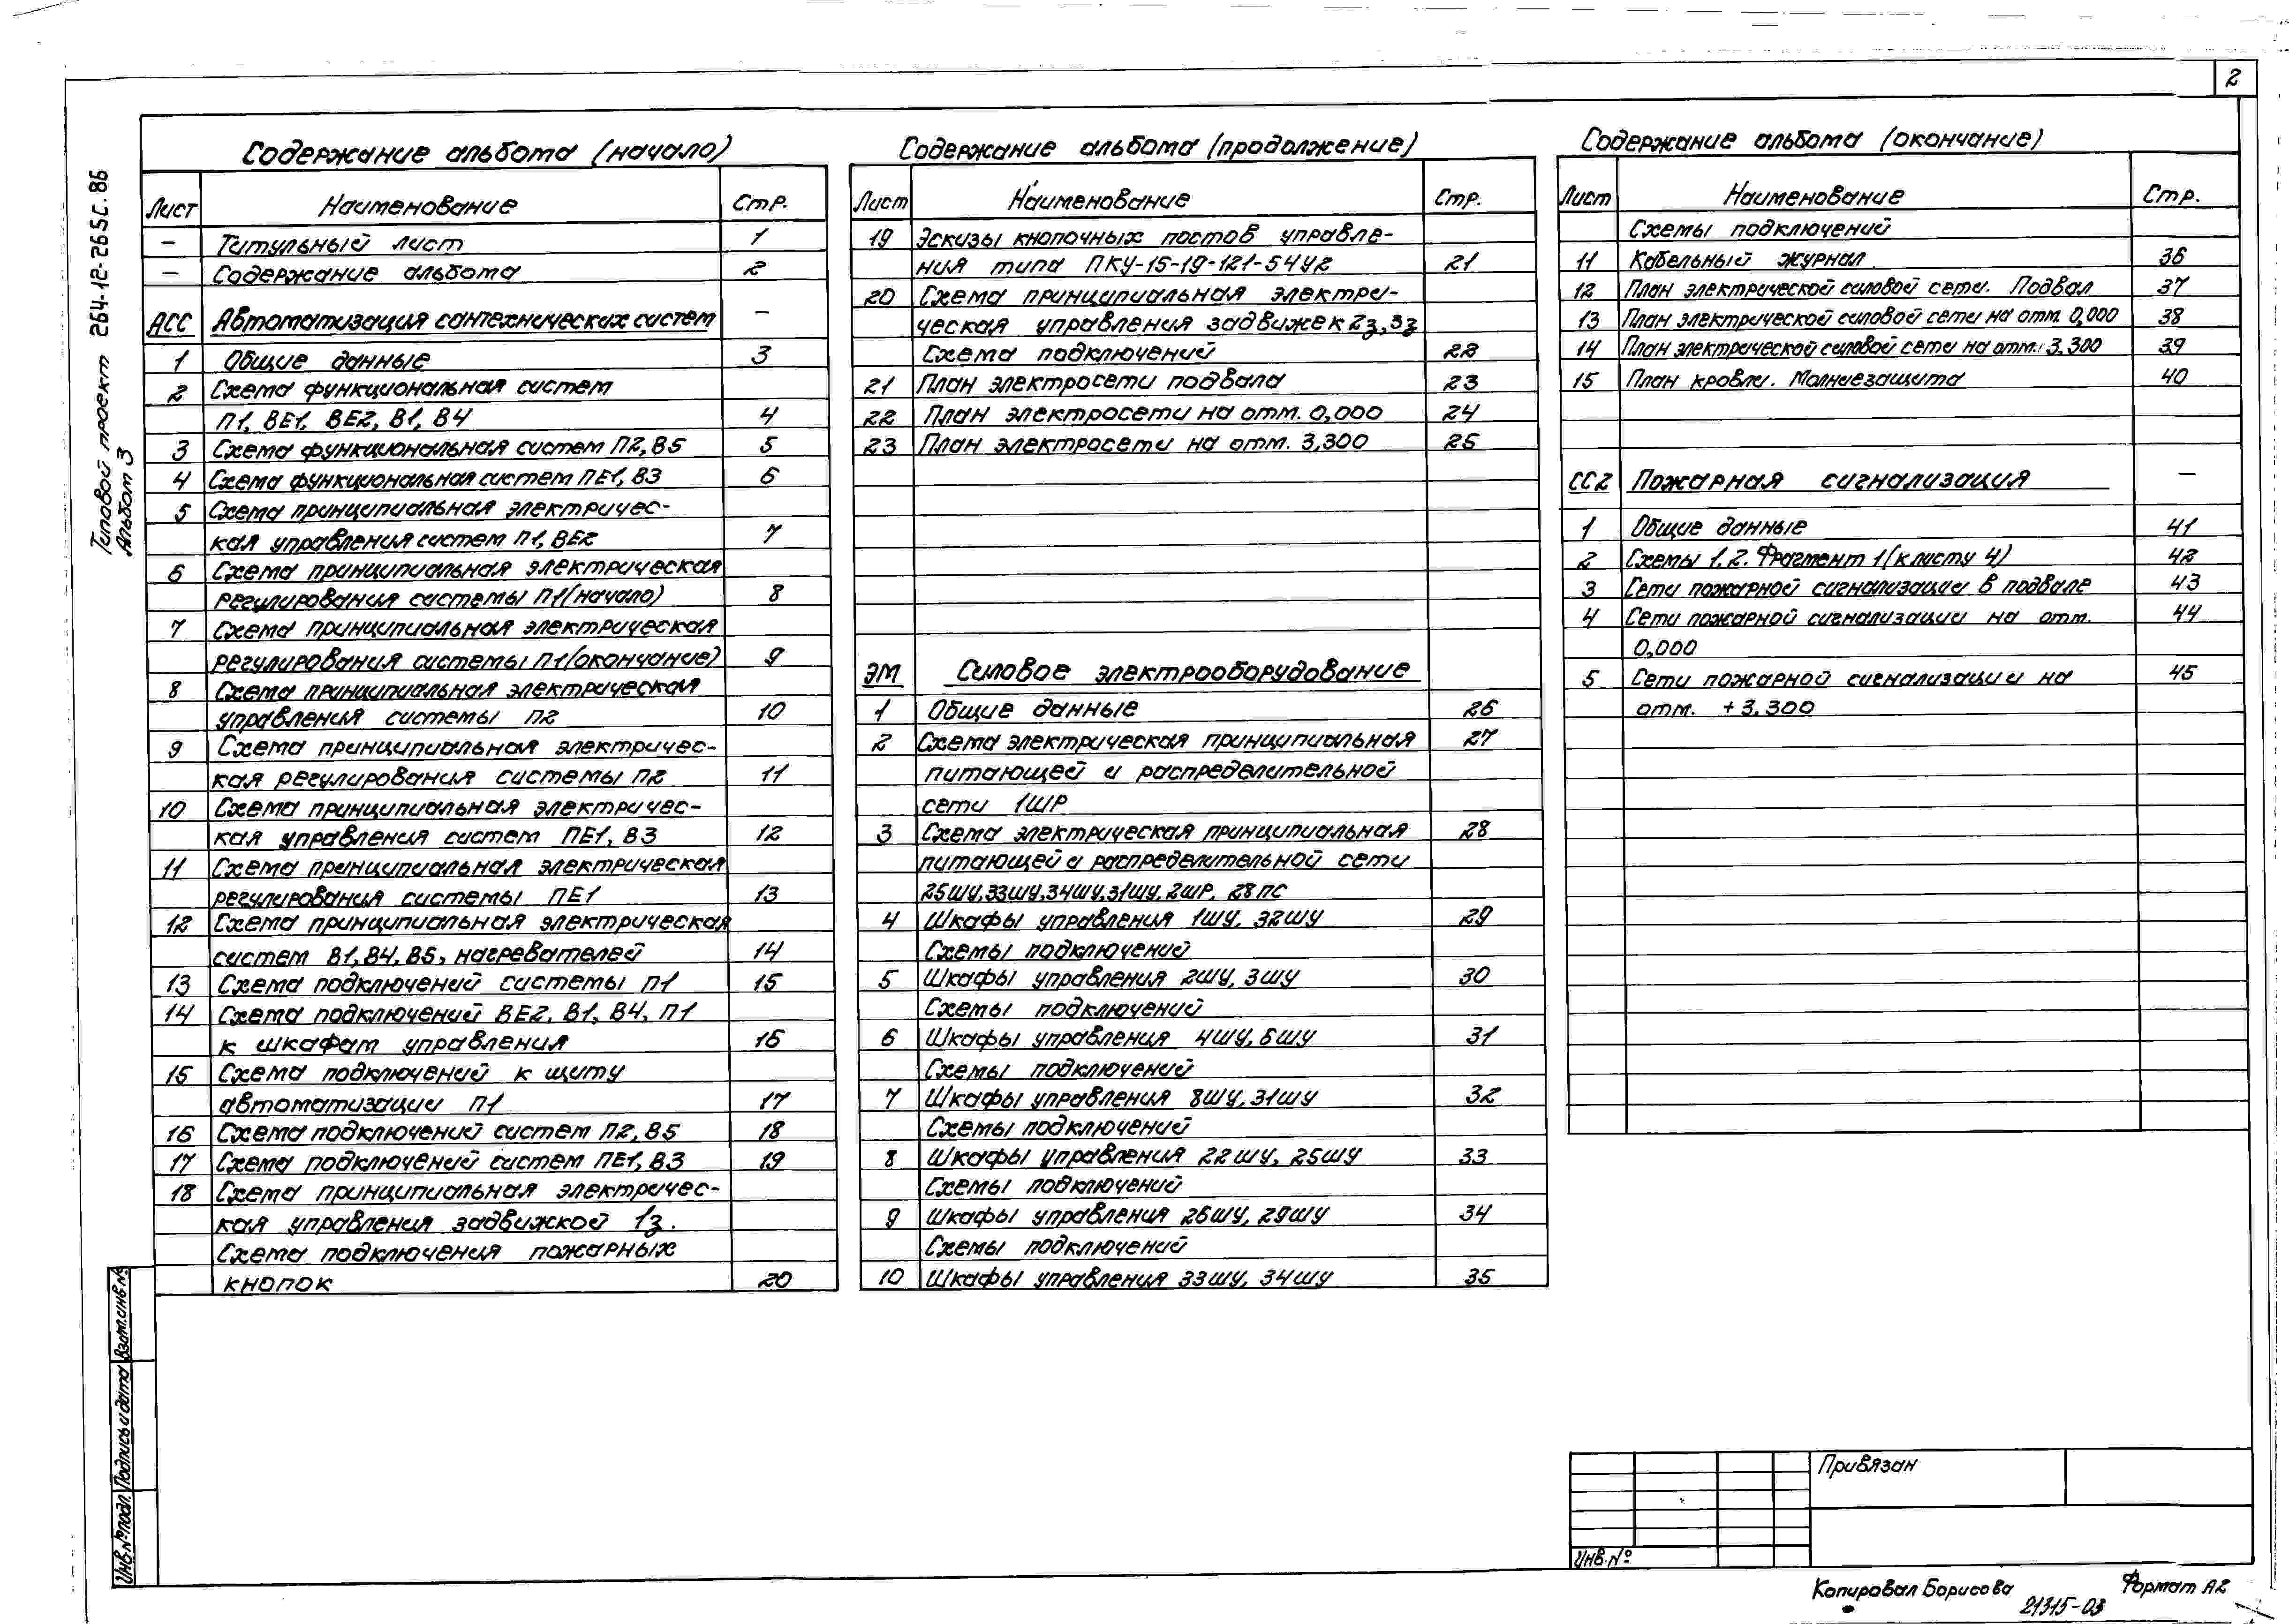 2
Типовой проект 264-12-265с.86
Альбом 3
Содержание альбома (начало)
Лист Наименование Стр.
– Титульный лист 1
– Содержание альбома 2
АСС Автоматизация сантехнических систем –
1 Общие данные 3
2 Схема функциональная систем
П1, ВЕ1, ВЕ2, В1, В4 4
3 Схема функциональная систем П2, В5 5
4 Схема функциональная систем ПЕ1, В3 6
5 Схема принципиальная электричес-
кая управления систем П1, ВЕ2 7
6 Схема принципиальная электрическая
регулирования системы П1 (начало) 8
7 Схема принципиальная электрическая
регулирования системы П1 (окончание) 9
8 Схема принципиальная электрическая
управления системы П2 10
9 Схема принципиальная электричес-
кая регулирования системы П2 11
10 Схема принципиальная электричес-
кая управления систем ПЕ1, В3 12
11 Схема принципиальная электрическая
регулирования системы ПЕ1 13
12 Схема принципиальная электрическая
систем В1, В4, В5, нагревателей 14
13 Схема подключений системы П1 15
14 Схема подключений ВЕ2, В1, В4, П1
к шкафам управления 16
15 Схема подключений к щиту
автоматизации П1 17
16 Схема подключений систем П2, В5 18
17 Схема подключений систем ПЕ1, В3 19
18 Схема принципиальная электричес-
кая управления задвижкой 1з.
Схема подключения пожарных
кнопок 20
Содержание альбома (продолжение)
Лист Наименование Стр.
19 Эскизы кнопочных постов управле-
ния типа ПКУ-15-19-121-54У2 21
20 Схема принципиальная электри-
ческая управления задвижек 2з, 3з
Схема подключений 22
21 План электросети подвала 23
22 План электросети на отм. 0,000 24
23 План электросети на отм. 3,300 25
ЭМ Силовое электрооборудование
1 Общие данные 26
2 Схема электрическая принципиальная 27
питающей и распределительной
сети 1ШР
3 Схема электрическая принципиальная 28
питающей и распределительной сети
25ШУ, 33ШУ, 34ШУ, 31ШУ, 2ШР, 28ПС
4 Шкафы управления 1ШУ, 32ШУ 29
Схемы подключений
5 Шкафы управления 2ШУ, 3ШУ 30
Схемы подключений
6 Шкафы управления 4ШУ, 6ШУ 31
Схемы подключений
7 Шкафы управления 8ШУ, 31ШУ 32
Схемы подключений
8 Шкафы управления 22ШУ, 25ШУ 33
Схемы подключений
9 Шкафы управления 26ШУ, 29ШУ 34
Схемы подключений
10 Шкафы управления 33ШУ, 34ШУ 35
Содержание альбома (окончание)
Лист Наименование Стр.
Схемы подключений
11 Кабельный журнал 36
12 План электрической силовой сети. Подвал 37
13 План электрической силовой сети на отм. 0,000 38
14 План электрической силовой сети на отм. 3,300 39
15 План кровли. Молниезащита 40
СС2 Пожарная сигнализация –
1 Общие данные 41
2 Схемы 1, 2. Фрагмент 1 (к листу 4) 42
3 Сети пожарной сигнализации в подвале 43
4 Сети пожарной сигнализации на отм. 44
0,000
5 Сети пожарной сигнализации на 45
отм. +3.300
Инв.№подл. Подпись и дата Взам.инв.№
Привязан
Инв.№
Копировал Борисова Формат А2
21315-03